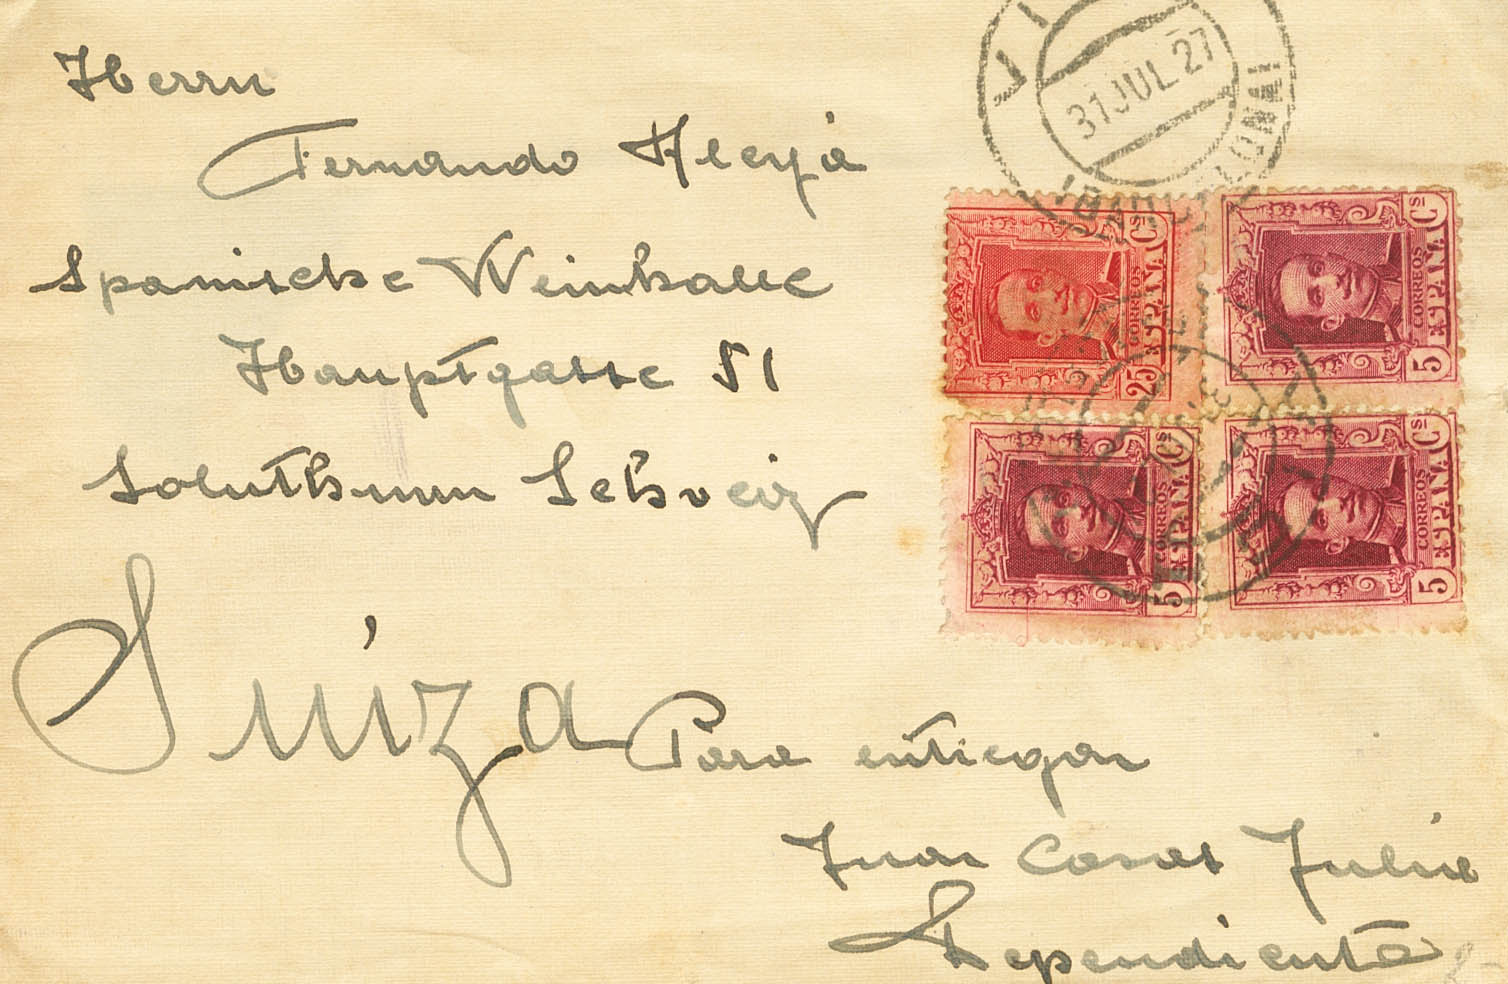 Herrn
Fernando Alecyá
Spanische Weinhalle
Hauptgasse 51
Soluthurn Schveiz
Suíza
Para entregar
Juan Casas Juliá
Dependiente
31 JUL. 27
25 Cs
CORREOS
ESPAÑA
5 Cs
CORREOS
ESPAÑA
5 Cs
CORREOS
ESPAÑA
5 Cs
CORREOS
ESPAÑA